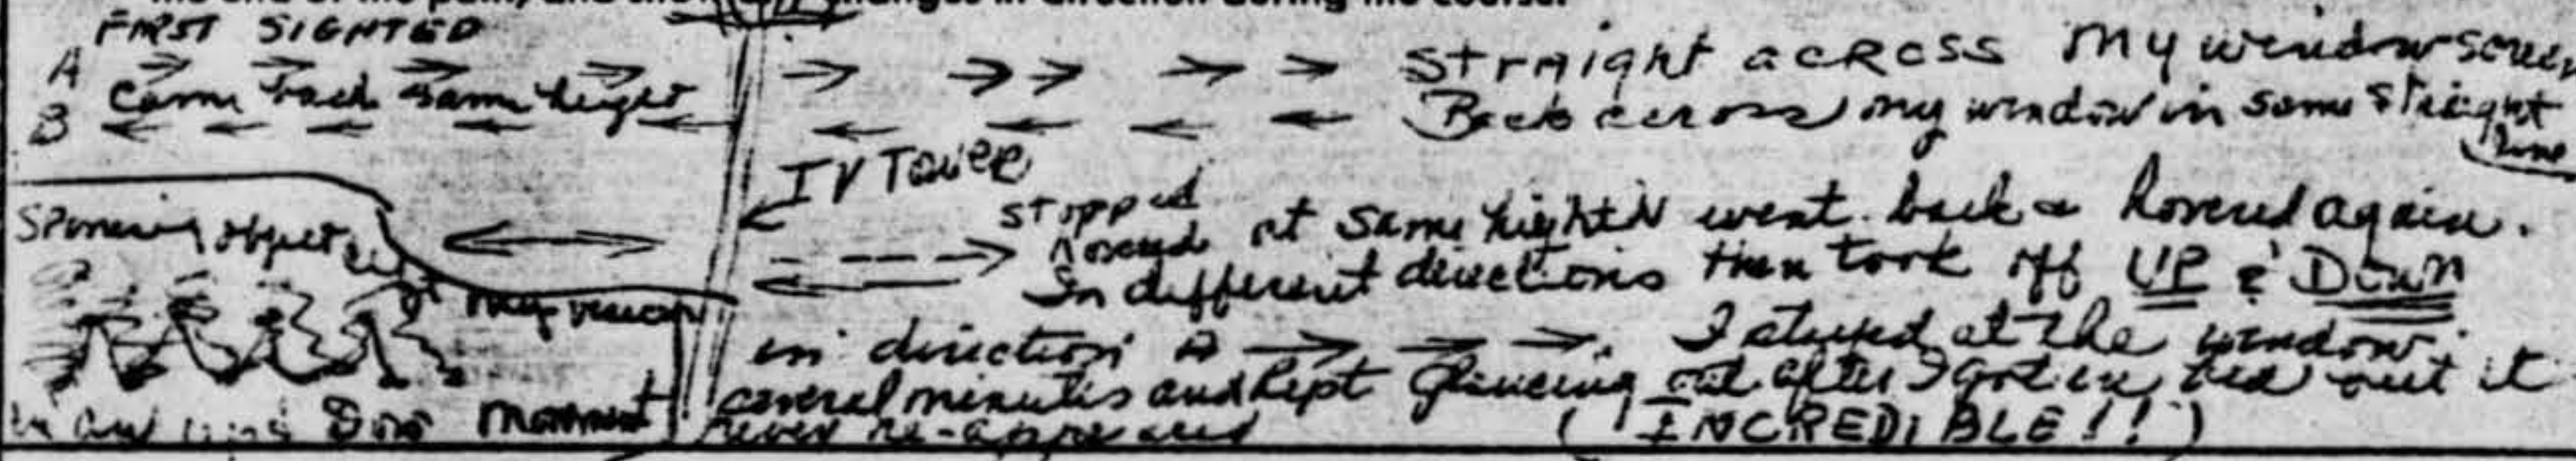 changes in direction during the course.
FIRST SIGHTED
A → → → → → →→ → → Straight acROSS My window screen
came back same height
B ← ← ← ← ← ← ← ← ← Back across my window in same straight line
TV Tower
Spinning object
stopped
hovered at same height went back & hovered again.
In different directions then took off UP & Down
my vision
in direction A → → →. I stayed at the window
several minutes and kept glancing out after I got in bed but it
never re-appeared (INCREDIBLE!!)
movement